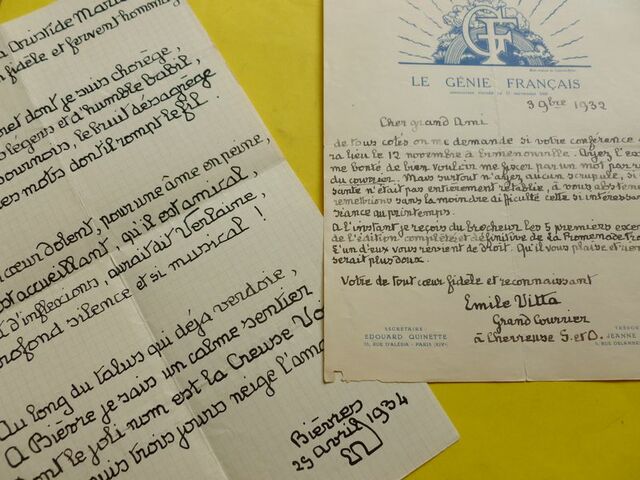 à Aristide Marie
fidèle et fervent hommag
net dont je suis chorège,
légers et d'humble babil,
sournois, le bruit désagrège
es mots dont il rompt le fil !
cœur dolent, pour une âme en peine,
est accueillant, qu'il est amical,
d'inflexions, aurait dit Verlaine,
rofond silence et si musical !
Au long du talus qui déjà verdoie,
A Bièvre je sais un calme sentier
Dont le joli nom est la Creuse Vo
uis trois jours neige l'ama
Bièvres
25 avril 1934
GF
LE GÉNIE FRANÇAIS
3 9bre 1932
Cher grand Ami
de tous cotés on me demande si votre conférence
ra lieu le 12 novembre à Ermenonville. Ayez l'ex
me bonté de bien vouloir me fixer par un mot par r
du courrier. Mais surtout n'ayez aucun scrupule, si
santé n'était pas entièrement rétablie, à vous absten
remettrions sans la moindre difficulté cette si intéressan
séance au printemps.
A l'instant je reçois du brocheur les 5 premiers exce
de l'édition complète et définitive de la Promenade Fra
l'un d'eux vous revient de droit. Qu'il vous plaise et rien
serait plus doux.
Votre de tout cœur fidèle et reconnaissant
Emile Vitta
Grand Courrier
S. et O.
SECRÉTAIRE :
EDOUARD QUINETTE
RUE D'ALÉSIA - PARIS (XIVe)
TRÉSO
JEANNE